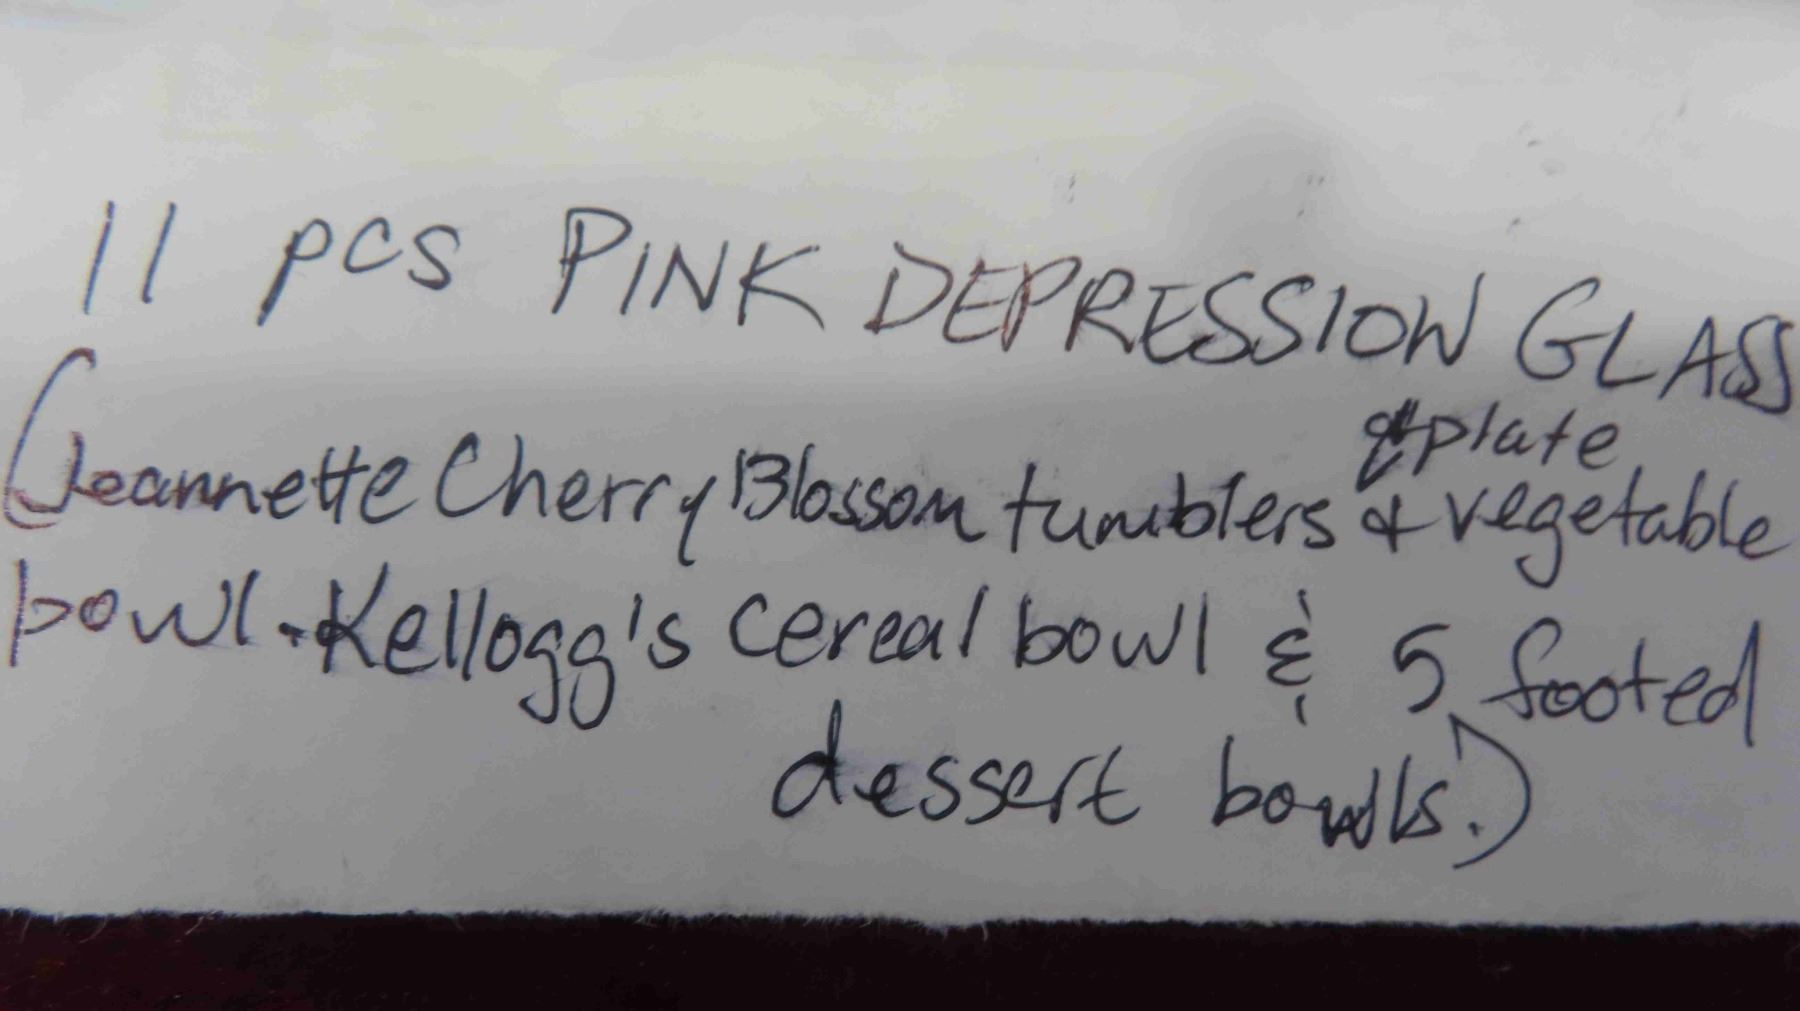 11 pcs PINK DEPRESSION GLASS
& plate
(Jeannette Cherry Blossom tumblers & vegetable
bowl. Kellogg's cereal bowl & 5 footed
dessert bowls.)